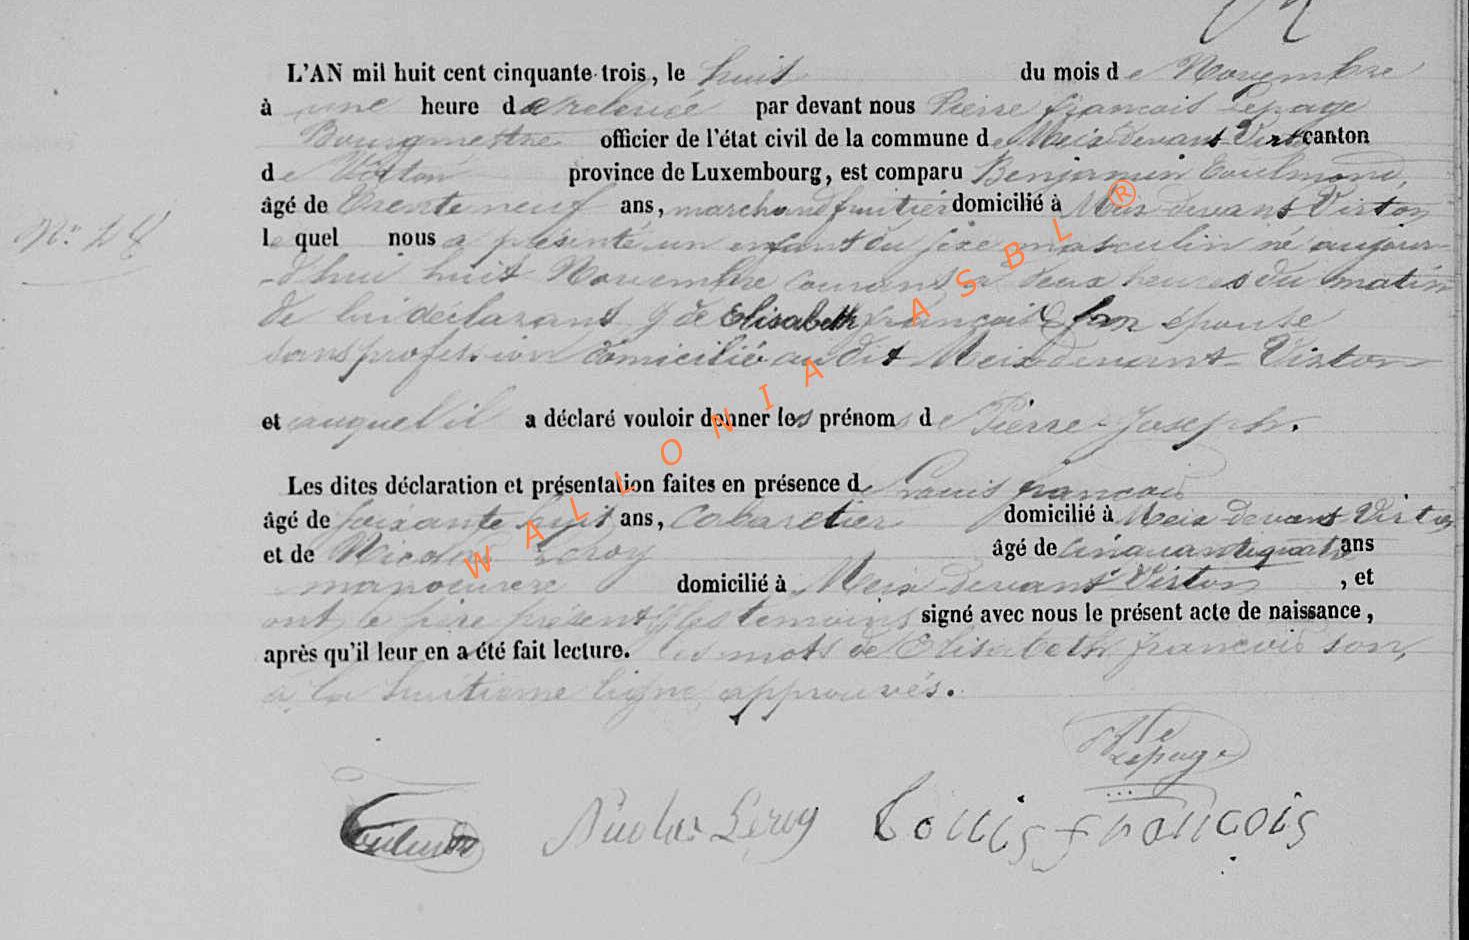 L'AN mil huit cent cinquante-trois, le huit du mois de Novembre
à une heure de relevée par devant nous Pierre françois Lepage
Bourgmestre officier de l'état civil de la commune de Meix devant Virton canton
de Virton province de Luxembourg, est comparu Benjamin Toulmond,
N° 28
âgé de Trente neuf ans, marchand fruitier domicilié à Meix devant Virton
lequel nous a présenté un enfant du sexe masculin né aujour-
-d'hui huit Novembre courant à deux heures du matin
de lui déclarant & de Elisabeth françois son épouse
sans profession domicilié au dit Meix devant Virton
et auquel il a déclaré vouloir donner les prénoms de Pierre-Joseph.
Les dites déclaration et présentation faites en présence de Louis françois
âgé de soixante huit ans, Cabaretier domicilié à Meix devant Virton
et de Nicolas Leroy âgé de Cinquante quatre ans
manoeuvre domicilié à Meix devant Virton, et
ont le père présent & les témoins signé avec nous le présent acte de naissance,
après qu'il leur en a été fait lecture. les mots de Elisabeth françois son,
à la huitieme ligne approuvés.
Lepage
Toulmond Nicolas Leroy Louis françois
WALLONIA ASBL ®